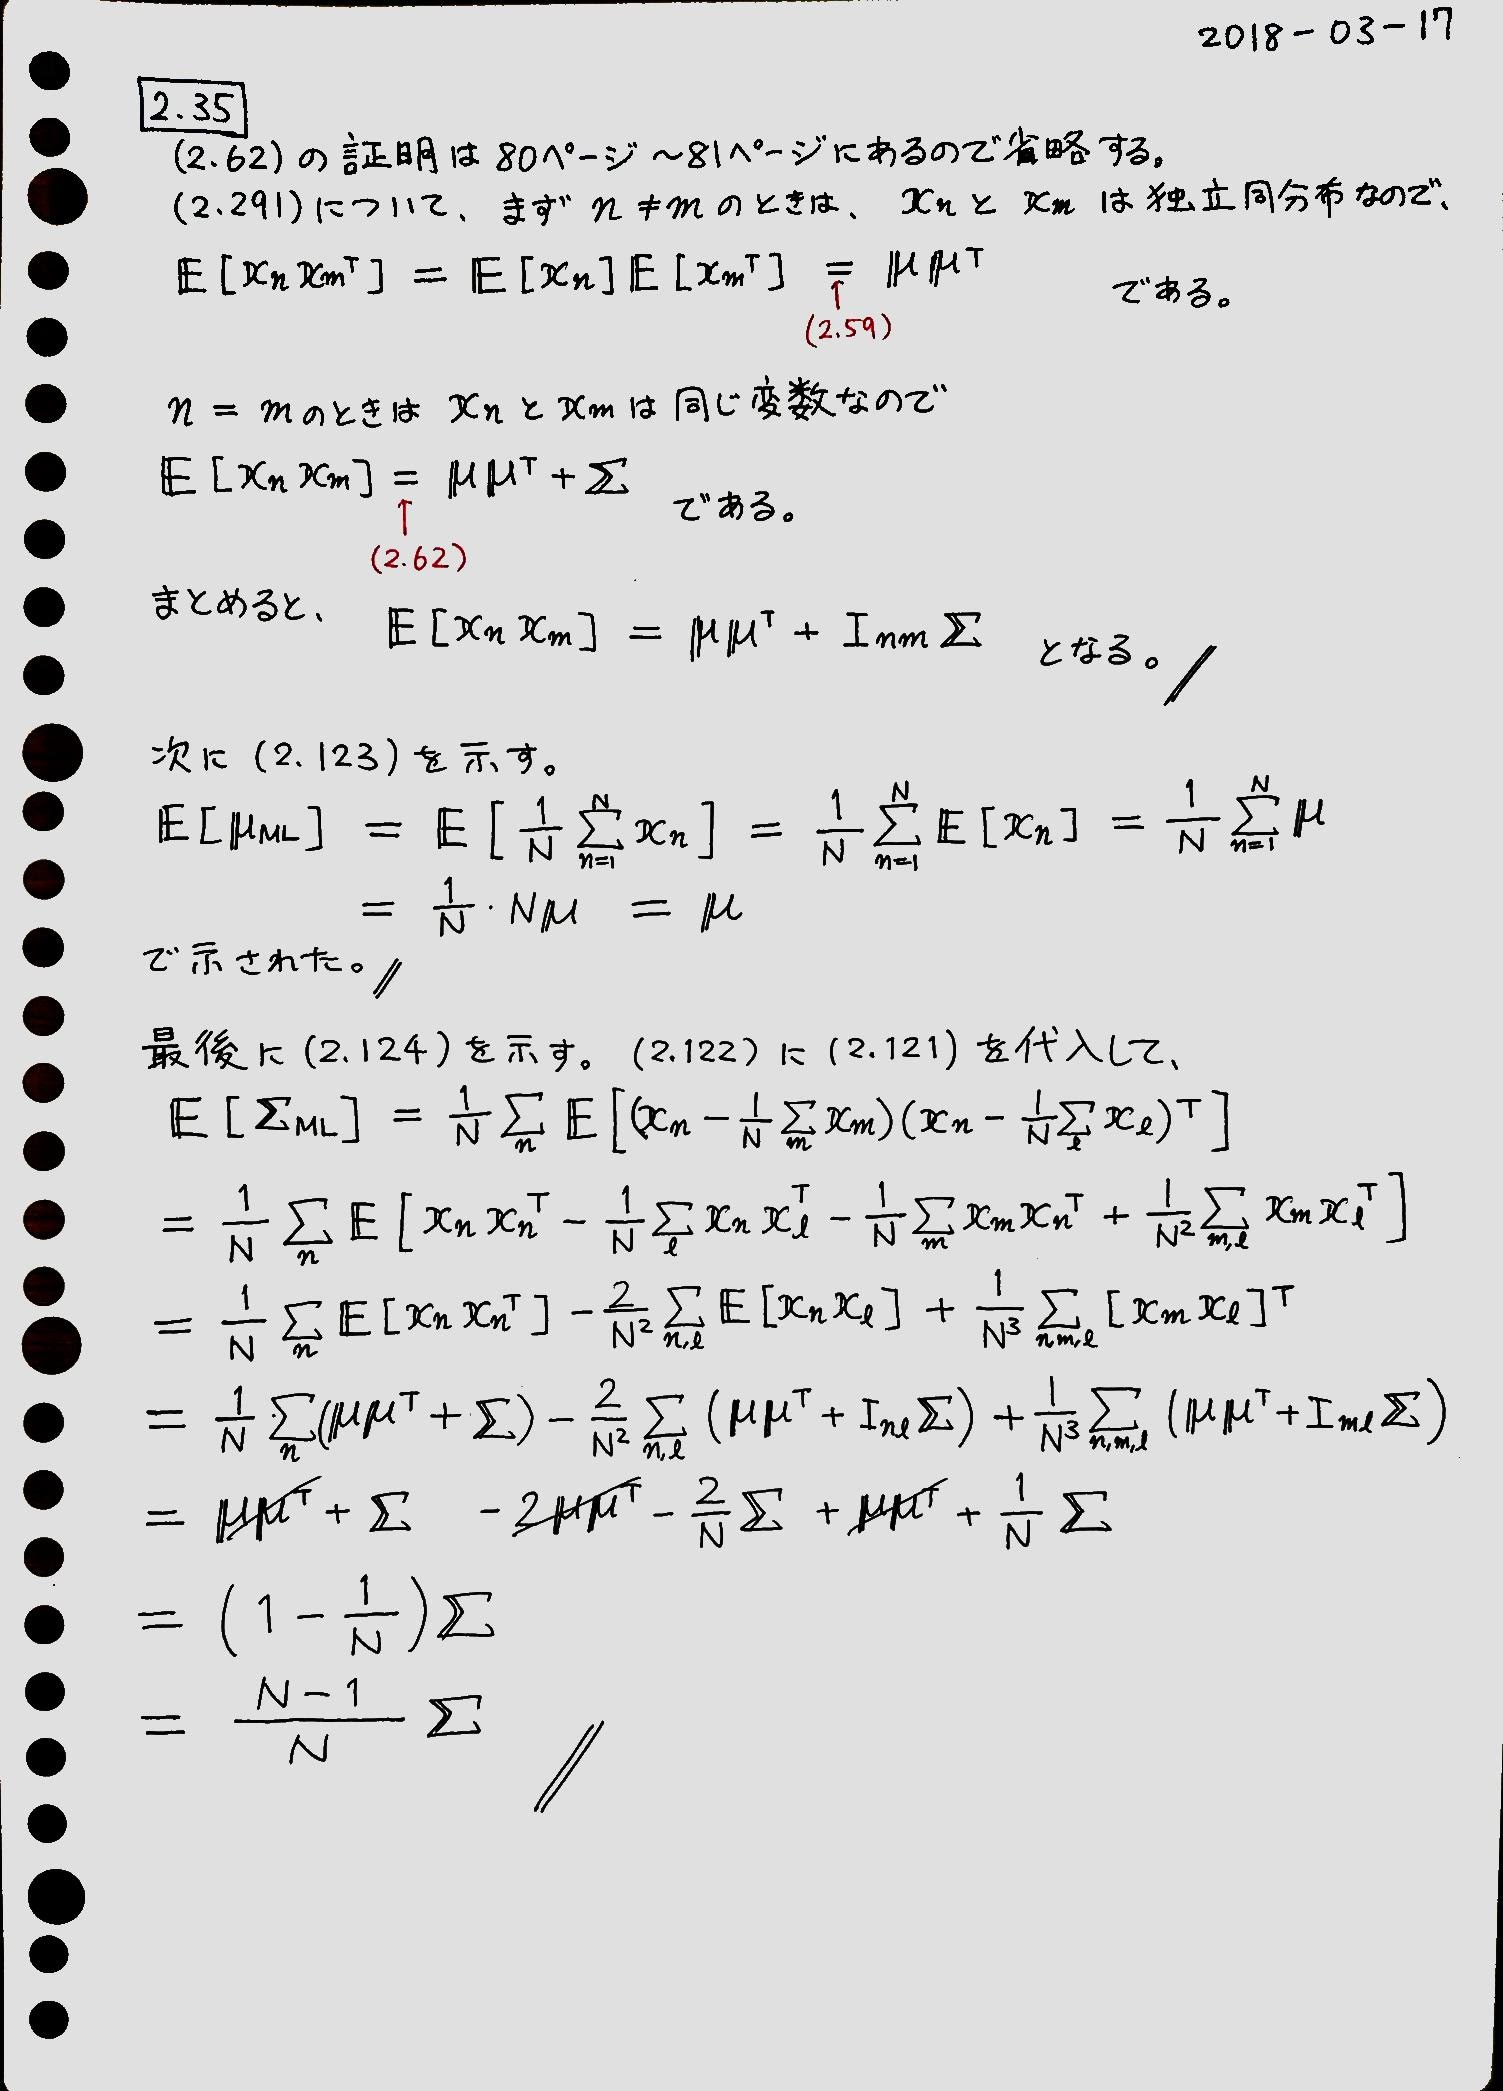 2018-03-17
2.35
(2.62)の証明は80ページ~81ページにあるので省略する。
(2.291)について、まず n≠m のときは、 xn と xm は独立同分布なので、
𝔼[xn xmᵀ] = 𝔼[xn]𝔼[xmᵀ] = μμᵀ である。
↑
(2.59)
n = m のときは xn と xm は同じ変数なので
𝔼[xn xm] = μμᵀ + Σ である。
↑
(2.62)
まとめると、 𝔼[xn xm] = μμᵀ + Inm Σ となる。//
次に (2.123) を示す。
𝔼[μML] = 𝔼[1/N Σ_{n=1}^{N} xn] = 1/N Σ_{n=1}^{N} 𝔼[xn] = 1/N Σ_{n=1}^{N} μ
= 1/N · Nμ = μ
で示された。//
最後に (2.124) を示す。 (2.122) に (2.121) を代入して、
𝔼[ΣML] = 1/N Σ_n 𝔼[(xn - 1/N Σ_m xm)(xn - 1/N Σ_ℓ xℓ)ᵀ]
= 1/N Σ_n 𝔼[xn xnᵀ - 1/N Σ_ℓ xn xℓᵀ - 1/N Σ_m xm xnᵀ + 1/N² Σ_{m,ℓ} xm xℓᵀ]
= 1/N Σ_n 𝔼[xn xnᵀ] - 2/N² Σ_{n,ℓ} 𝔼[xn xℓ] + 1/N³ Σ_{n,m,ℓ} [xm xℓ]ᵀ
= 1/N Σ_n (μμᵀ + Σ) - 2/N² Σ_{n,ℓ} (μμᵀ + Inℓ Σ) + 1/N³ Σ_{n,m,ℓ} (μμᵀ + Imℓ Σ)
= μμᵀ + Σ - 2μμᵀ - 2/N Σ + μμᵀ + 1/N Σ
= (1 - 1/N) Σ
= (N-1)/N Σ //